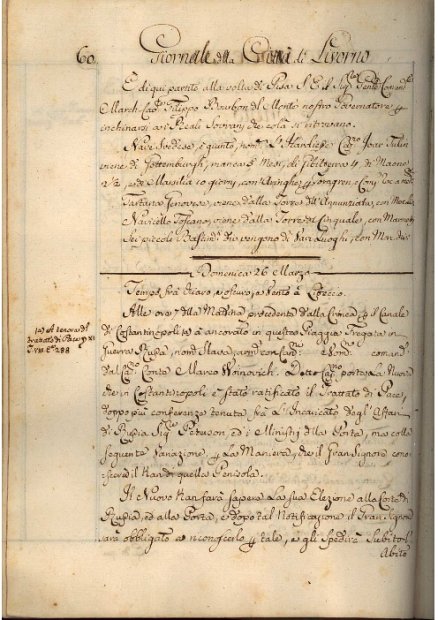 60.
Giornale della Città di Livorno
È di qui partito alla volta di Pisa S. E. il Sig.
March. Cav. Filippo Bourbon del Monte nostro Governatore p
inchinarsi a i Reali Sovrani, che colà si ritrovano.
Nave Svedese, è giunto, nom. Cap. Joac
viene di Gottemburgh, manca Mesi, di
2 1/2, e da Marsilia 10 giorni, con Aringhe, e
Tartana Genovese, viene dalla Torre dell'Annunziata, con
Navicello Toscano, viene dalla Torre del Cinquale, con Marmi
Sei piccoli Bastim. che vengono di Van Luoghi, con Mer.
Domenica 26 Marzo
Tempo frà chiaro, e oscuro, e Vento à Greccio.
Alle ore 7 della Mattina procedente dalla Crimea p il Canale
di Costantinopoli si è ancorato in questa Spiaggia Fregata in
Guerra Russa, nom. Slava con Can. e Uom. comand.
dal Cap. Conte Marco Woinovich. Detto Cap. porta la Nuova
che in Costantinopoli è stato ratificato il Trattato di Pace,
doppo più conferenze tenute, frà l'Incaricato degl'Affari
di Russia Sig. Peterson, ed i Ministri della Porta, ma colla
seguente Variazione, p La Maniera, che il Gran Signore cono-
scerà il Kan di quella Penisola.
(a) A tenore del
trattato di Pace
Il Nuovo Kan farà sapere La sua Elezione alla Corte di
Russia, ed alla Porta, e dopo tal Notificazione il Gran Signore
sarà obbligato a riconoscerlo p tale, e gli spedirà Subito l'
Abito